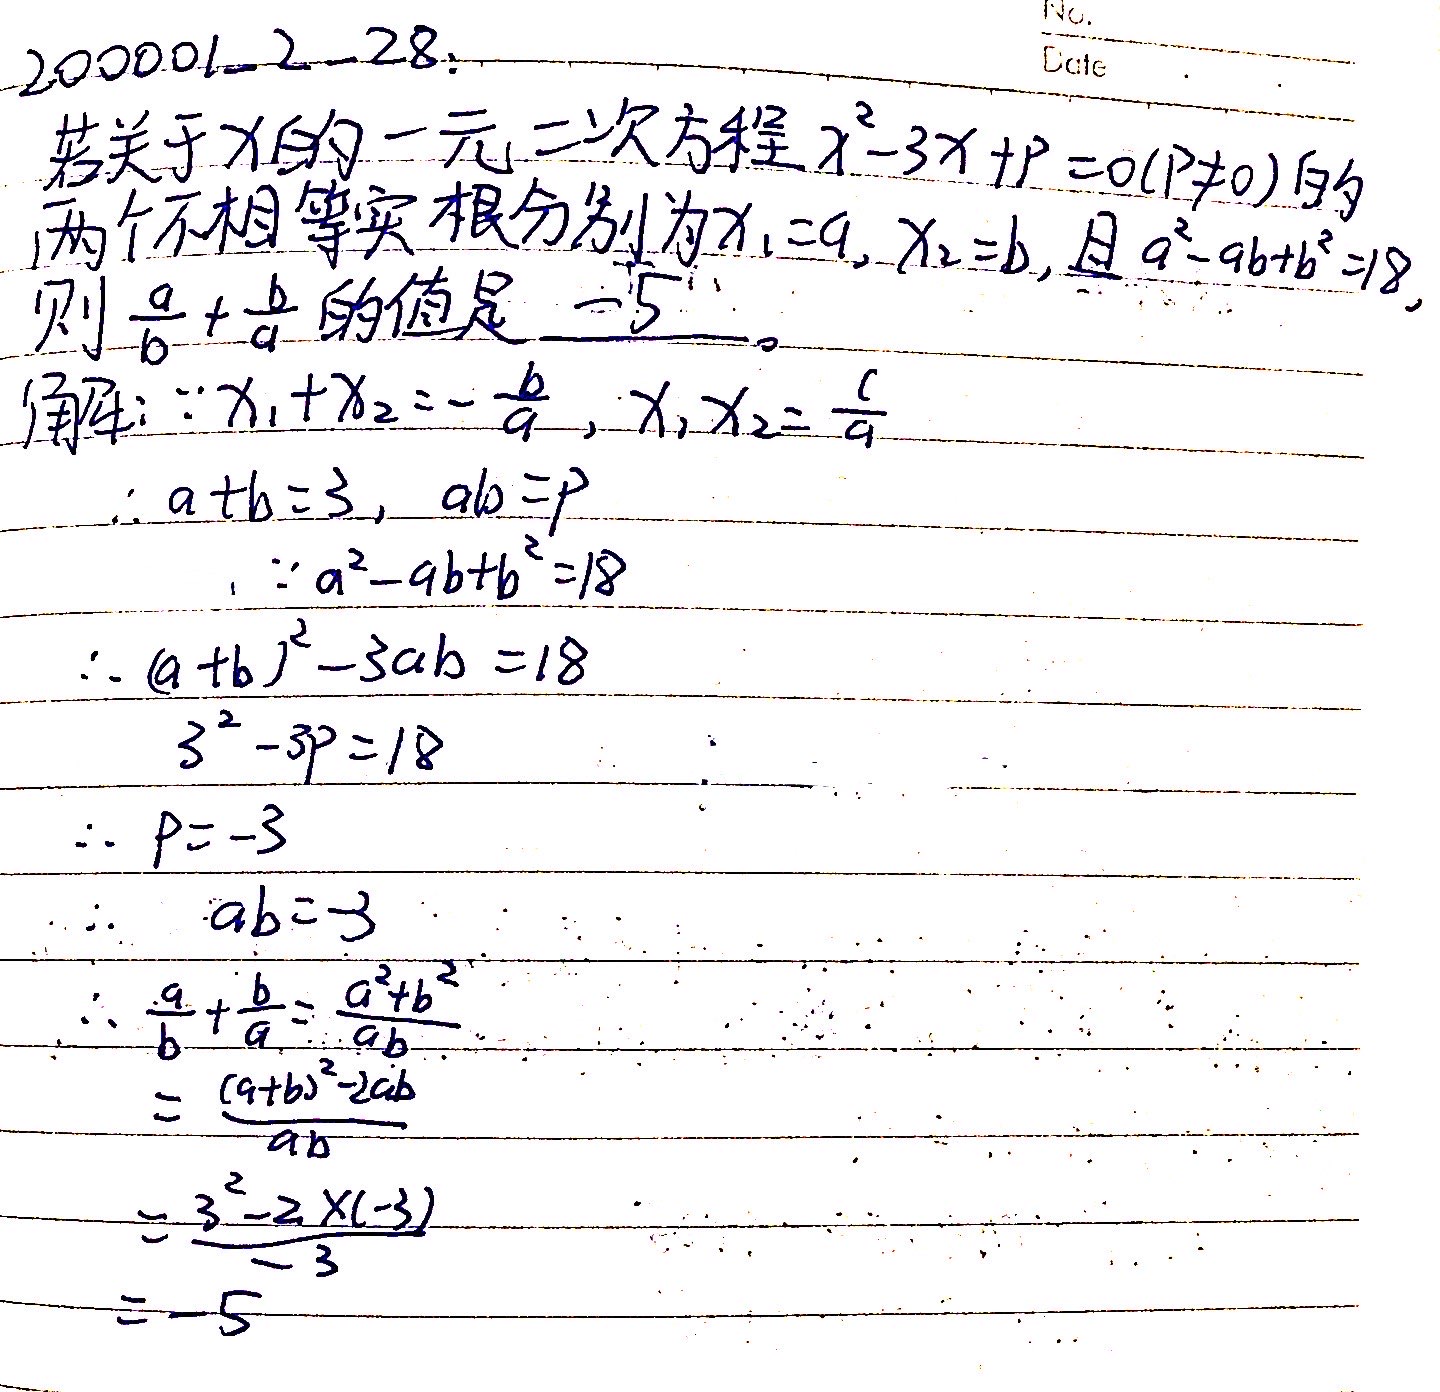 No.
Date
200001-2-28:
若关于x的一元二次方程x²-3x+P=0(P≠0)的
两个不相等实根分别为x₁=a, x₂=b, 且a²-ab+b²=18,
则 a/b + b/a 的值是 -5 。
解: ∵ x₁+x₂=-b/a, x₁x₂=c/a
∴ a+b=3, ab=P
∵ a²-ab+b²=18
∴ (a+b)²-3ab=18
3²-3P=18
∴ P=-3
∴ ab=-3
∴ a/b + b/a = (a²+b²)/ab
= ((a+b)²-2ab)/ab
= (3²-2×(-3))/-3
= -5